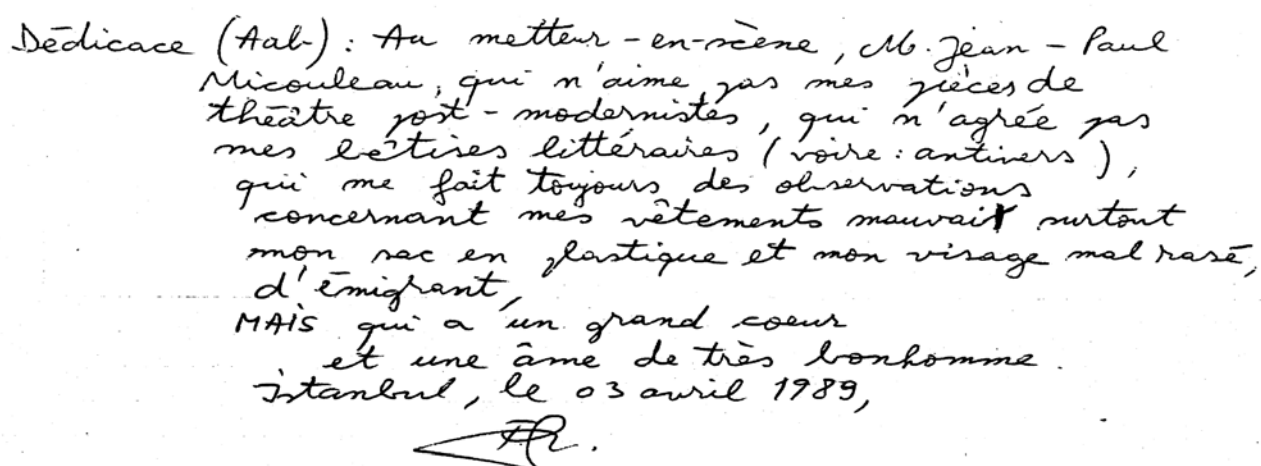 Dédicace (Aal-): Au metteur-en-scène, M. Jean-Paul
Micouleau, qui n'aime pas mes pièces de
théâtre post-modernistes, qui n'agrée pas
mes bêtises littéraires (voire: antivers),
qui me fait toujours des observations
concernant mes vêtements mauvais surtout
mon sac en plastique et mon visage mal rasé,
d'émigrant,
MAIS qui a un grand coeur
et une âme de très bonhomme.
Istanbul, le 03 avril 1989,